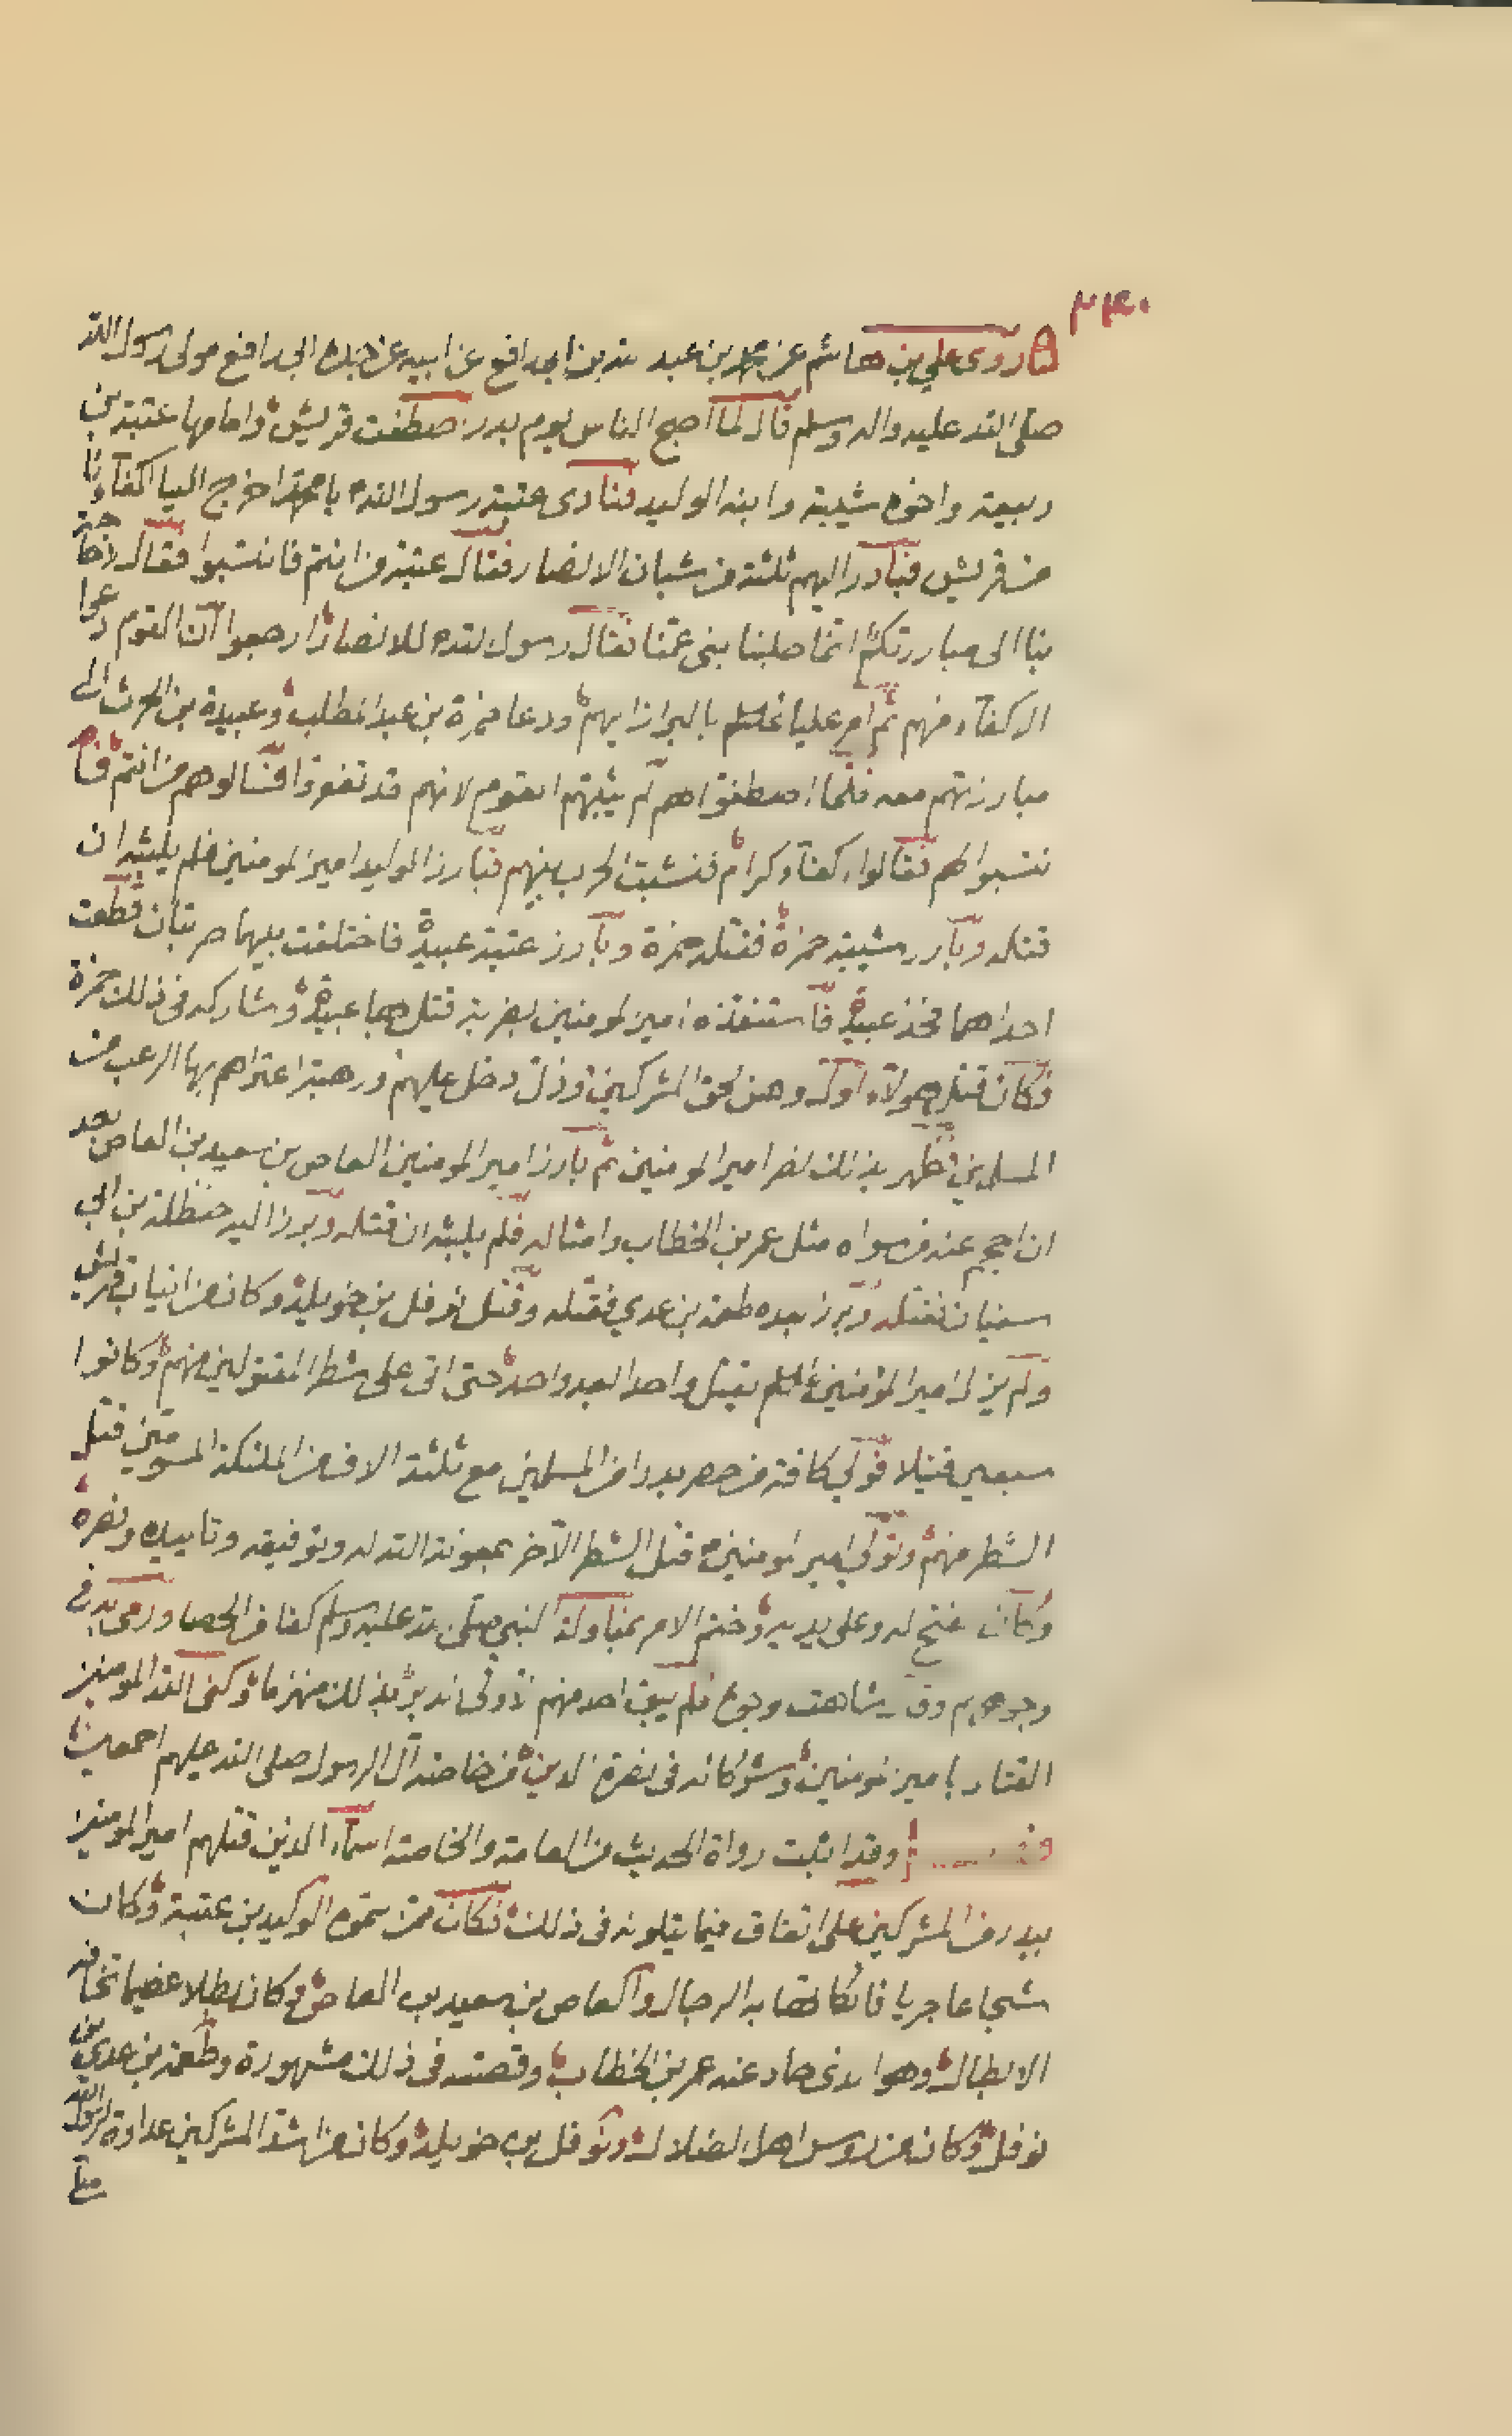 ٢٣٠
روى علي بن هاشم عن محمد بن عبد الله بن ابي رافع عن ابيه عن جده ابي رافع مولى رسول الله
صلى الله عليه واله وسلم قال لما اصبح الناس يوم بدر اصطفت قريش وامامها عتبة بن
ربيعة واخوه شيبة وابنه الوليد فنادى عتبة رسول الله يا محمد اخرج الينا اكفاءنا
من قريش فبادر اليهم ثلثة من شبان الانصار فقال عتبة من انتم فانتسبوا فقال لا حاجة
بنا الى مبارزتكم انما طلبنا بني عمنا فقال رسول الله للانصار ارجعوا ان القوم دعوا
الاكفاء منهم ثم امر عليا بالبراز اليهم ودعا حمزة بن عبد المطلب وعبيدة بن الحرث الى
مبارزتهم معه فلما اصطفوا هم لم يثبتهم القوم لانهم قد تغفروا فسالوهم من انتم فا
نتسبوا لهم فقالوا اكفاء كرام فنشبت الحرب بينهم فبارز الوليد امير المومنين فلم يلبثه ان
قتله وبارز شيبة حمزة فقتله حمزة وبارز عتبة عبيدة فاختلفت بينهما ضربتان قطعت
احداهما فخذ عبيدة فاستنقذه امير المومنين بضربة قتل بها عتبة وشاركه في ذلك حمزة
وكان قتل هولاء اول وهن لحق المشركين وذل دخل عليهم ورهبة اعتراهم بها الرعب من
المسلمين وظهر بذلك نصر امير المومنين ثم بارز امير المومنين العاص بن سعيد بن العاص بعد
ان احجم عنه من سواه مثل عمر بن الخطاب وامثاله فلم يلبثه ان قتله وبرز اليه حنظلة بن ابي
سفيان فقتله وبرز بعده طعمة بن عدي فقتله وقتل نوفل بن خويلد وكان من انياب قريش
ولم يزل امير المؤمنين يقتل واحدا بعد واحد حتى اتى على شطر المقتولين منهم وكانوا
سبعين قتيلا فولي كافة من حضر بدرا من المسلمين مع ثلثة الاف من الملئكة المسومين قتل
الشطر منهم وتولى امير المومنين قتل الشطر الآخر بمعونة الله له وتوفيقه وتاييده ونصره
وكان الفتح له وعلى يديه وختم الامر بمناولة النبي صلى الله عليه وسلم كفا من الحصا ورمى به في
وجوههم وقال شاهت الوجوه فلم يبق احد منهم الا ولى الدبر بذلك منهزما وكفى الله المومنين
القتال بامير المومنين وشركائه في نصرة الدين من خاصة آل الرسول صلى الله عليهم اجمعين
وقد اثبت رواة الحديث من العامة والخاصة اسماء الذين قتلهم امير المومنين
ببدر من المشركين على اتفاق فيما يتلونه في ذلك فكان ممن سموه الوليد بن عتبة وكان
شجاعا جريا فاتكا تهابه الرجال والعاص بن سعيد بن العاص وكان بطلا عضيما تخافه
الابطال وهو الذى حاد عنه عمر بن الخطاب وقصته في ذلك مشهورة وطعمة بن عدي بن
نوفل وكان من روس اهل الضلال ونوفل بن خويلد وكان من اشد المشركين عداوة لرسول الله